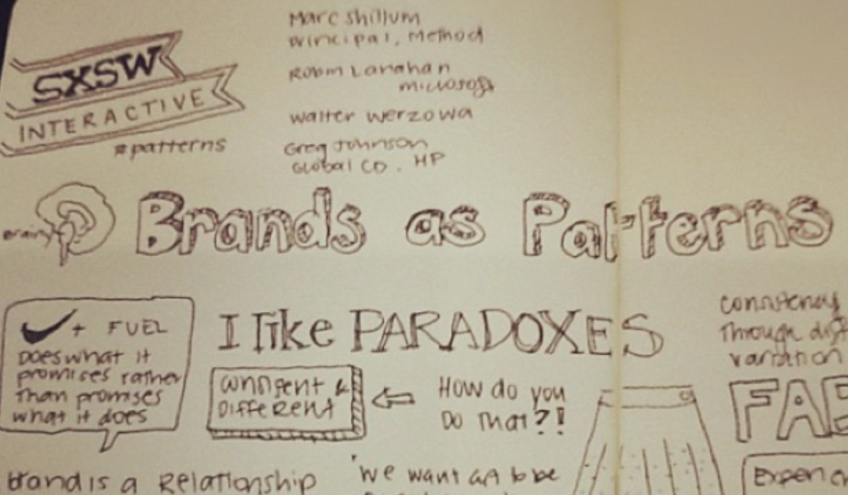 SXSW
INTERACTIVE
#patterns
Marc Shillum
principal, Method
Robin Lanahan
microsoft
Walter Werzowa
Greg Johnson
Global CD. HP
brain
Brands as Patterns
+ FUEL
Does what it
promises rather
than promises
what it does
I like PARADOXES
consistent &
Different
How do you
Do that?!
consistency
through
variation
Brand is a Relationship
"we want to be